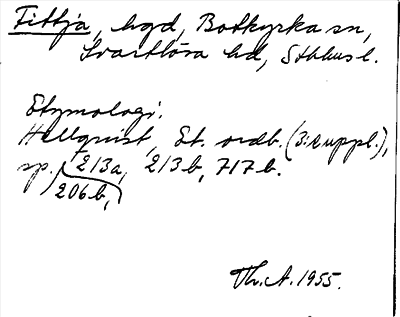 Fittja, hgd, Botkyrka sn,
Svartlösa hd, Sthlms l.
Etymologi.
Hellquist, Et. ordb. (3:e uppl.),
sp. 213a, 213b, 717b.
206b,
Th. A. 1955.